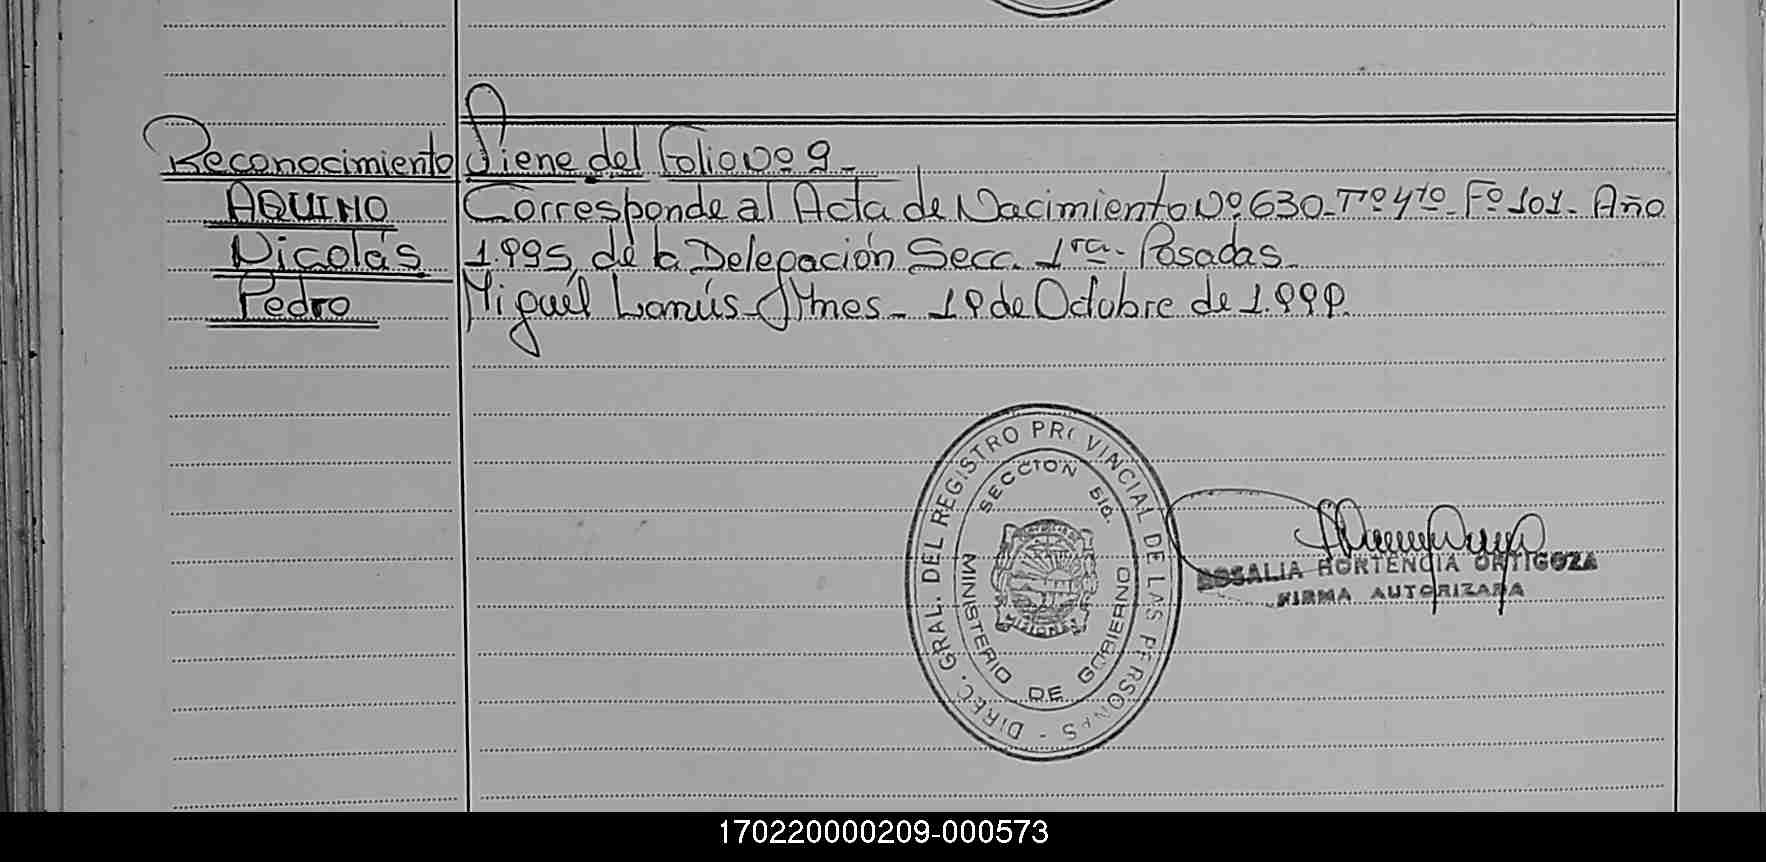 Reconocimiento Viene del Folio Nº 9_
AQUINO Corresponde al Acta de Nacimiento Nº 630_Tº 4to_Fº 101_ Año
Nicolás 1.995, de la Delegación Secc. 1ra_ Posadas_
Pedro Miguel Lanús_Mnes_ 19 de Octubre de 1.999.
DIREC. GRAL. DEL REGISTRO PROVINCIAL DE LAS PERSONAS -
SECCION 5ta.
MISIONES
MINISTERIO DE GOBIERNO
ROSALIA HORTENCIA ORTIGOZA
FIRMA AUTORIZADA
170220000209-000573